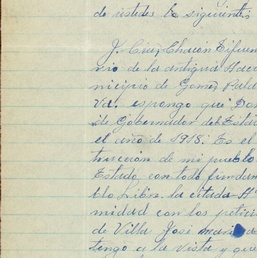 de ustedes lo siguiente:
J. Cruz Chacón Cifuen
rio de la antigua Hac
nicipio de Gomez Pala
Va. expongo que Don
de Gobernador del Esta
el año de 1918. Es el
trucción de mi pueblo
Estado, con todo fundam
blo Libre. la citada H
midad con los peticio
de Villa José
tengo a la vista y que